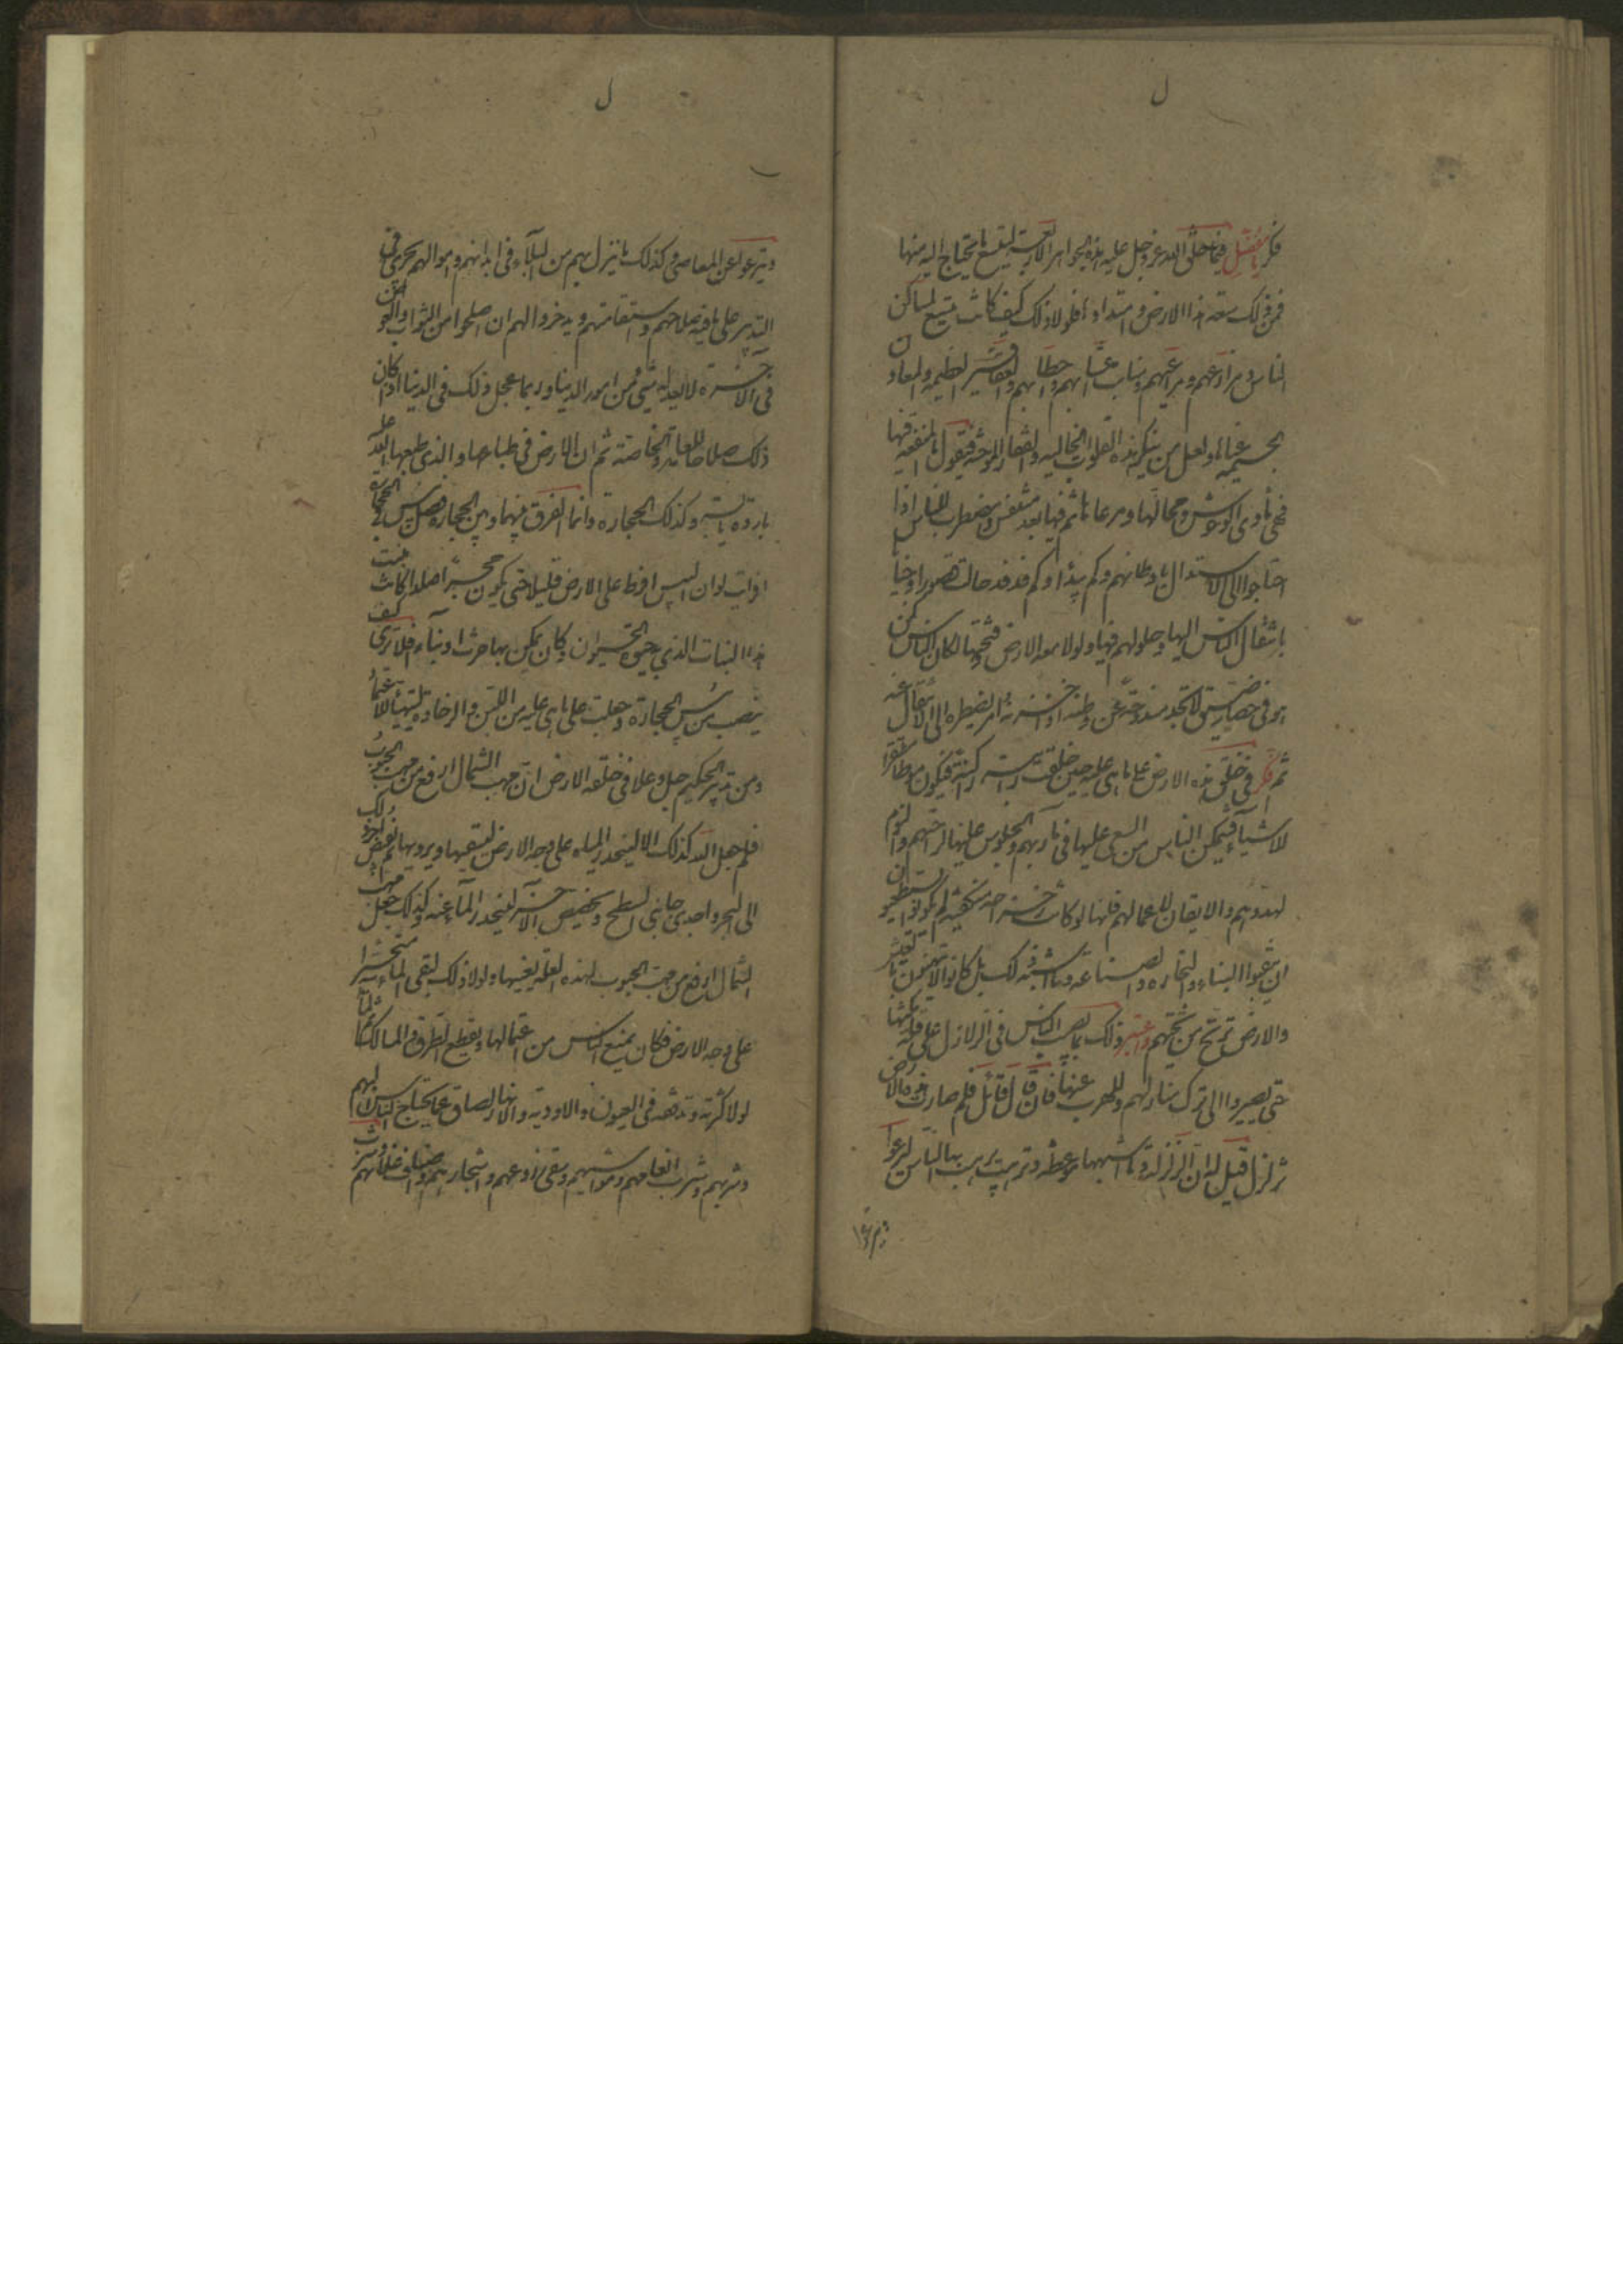 ل
فكر يا مفضل فيما خلق الله عز وجل عليه هذه الجواهر الاربعة ليتسع ما يحتاج اليه منها
فمن ذلك سعة هذا الارض وامتدادها فلولا ذلك كيف كانت تتسع لمساكن
الناس ومزارعهم ومراعيهم ومنابت اخشابهم واحطابهم والعقاقير العظيمه والمعادن
الجسيمه غناؤها ولعل من ينكر هذه الفلوات الخاليه والقفار الموحشه فيقول ما المنفعه فيها
فهي مأوى الوحوش ومحالها ومرعاها ثم فيها بعد متنفس ومضطرب للناس اذا
احتاجوا الى الاستبدال باوطانهم وكم بيداء وكم فدفد حالت قصورا وجنانا
بانتقال الناس اليها وحلولهم فيها ولولا سعه الارض وفسحتها لكان الناس كمن
هو في حصار ضيق لا تجد مندوحة عن وطنه اذا حزبه امر يضطره الى الانتقال عنه
ثم فكر في خلق هذه الارض على ما هي عليه حين خلقت راتبة راكنة فيكون موطنا مستقرا
للاشياء فيتمكن الناس من السعي عليها في مآربهم والجلوس عليها لراحتهم والنوم
لهدوهم والاتقان لاعمالهم فانها لو كانت رجراجه منكفئة لم يكونوا يستطيعون
ان يتقنوا البناء والنجاره والصناعه وما اشبه ذلك بل كانوا لا يتهنون بالعيش
والارض ترتج من تحتهم واعتبر ذلك بما يصيب الناس في الزلازل على قلة مكثها
حتى يصيروا الى ترك منازلهم والهرب عنها فان قال قائل فلم صارت هذه الارض
تزلزل قيل له ان الزلزلة وما اشبهها موعظة وترهيب يرهب بها الناس ليرعوا
ل
ويرعوا عن المعاصي وكذلك ما ينزل بهم من البلاء في ابدانهم واموالهم يجري في
التدبير على ما فيه صلاحهم واستقامتهم ويدخر لهم ان صلحوا من الثواب والعوض
في الآخرة ما لا يعدله شيء من امور الدنيا وربما عجل ذلك في الدنيا اذا كان
ذلك صلاحا للعامة والخاصة ثم ان الارض في طباعها الذي طبعها الله عليه
باردة يابسة وكذلك الحجارة وانما الفرق بينها وبين الحجارة فضل يبس في الحجارة
افرايت لو ان اليبس افرط على الارض قليلا حتى يكون حجرا صلدا اكانت تنبت
هذا النبات الذي به حيوة الحيوان وكان يمكن بها حرث او بناء افلا ترى كيف
ينصب من يبس الحجارة وجعلت على ما هي عليه من اللين والرخاوة ليتهيأ للاعتماد
ومن تدبير الحكيم جل وعلا في خلقه الارض ان مهب الشمال ارفع من مهب الجنوب
فلم جعل الله كذلك الا لينحدر المياه على وجه الارض لتسقيها وترويها ثم يفيض آخر ذلك
الى البحر واحدى جانبي السطح وتخفيض الآخر لينحدر الماء عنه وكذلك جعل مهب
الشمال ارفع من مهب الجنوب لهذه العلة بعينها ولولا ذلك لبقي الماء متحيرا
على وجه الارض فكان يمنع الناس من اعتمالها ويقطع الطرق والمسالك ثم الماء
لولا كثرته وتدفقه في العيون والاودية والانهار لضاق عما يحتاج الناس اليه
وشربهم وشرب انعامهم ومواشيهم وسقي زروعهم واشجارهم واصناف غلاتهم وشرب